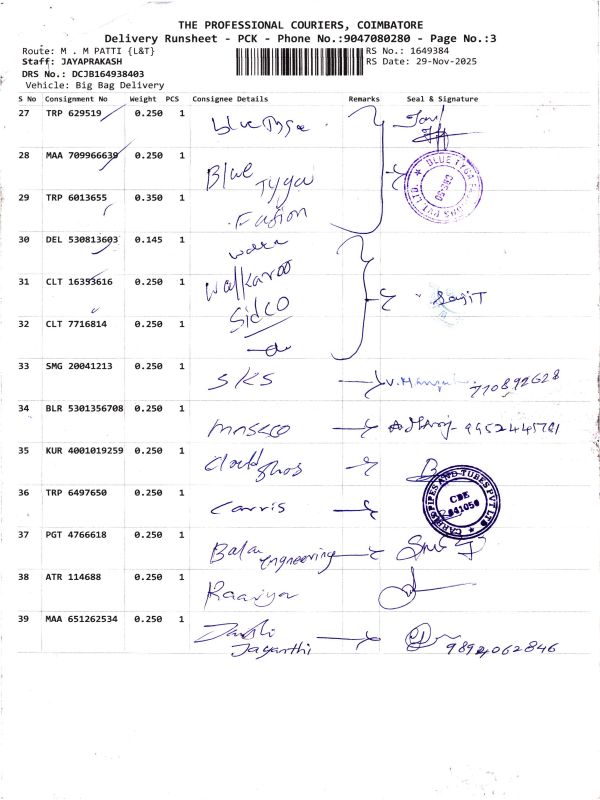 THE PROFESSIONAL COURIERS, COIMBATORE
Delivery Runsheet - PCK - Phone No.:9047080280 - Page No.:3
Route: M . M PATTI {L&T}
RS No.: 1649384
Staff: JAYAPRAKASH
RS Date: 29-Nov-2025
DRS No.: DCJB164938403
Vehicle: Big Bag Delivery
S No Consignment No Weight PCS Consignee Details Remarks Seal & Signature
27 TRP 629519 0.250 1 blue Tyga
28 MAA 709966639 0.250 1 Blue Tyga
BLUE TYGA FASHIONS PVT LTD.
29 TRP 6013655 0.350 1 Fasion
30 DEL 530813603 0.145 1
31 CLT 16393616 0.250 1 Walkaroo
32 CLT 7716814 0.250 1 Sidco
-do-
33 SMG 20041213 0.250 1 SKS
34 BLR 5301356708 0.250 1
35 KUR 4001019259 0.250 1
36 TRP 6497650 0.250 1 Carris
CARRIS PIPES AND TUBES PVT LTD
CBE
641050
37 PGT 4766618 0.250 1 Balan engineering
38 ATR 114688 0.250 1
39 MAA 651262534 0.250 1 Jayanthi 9894062846